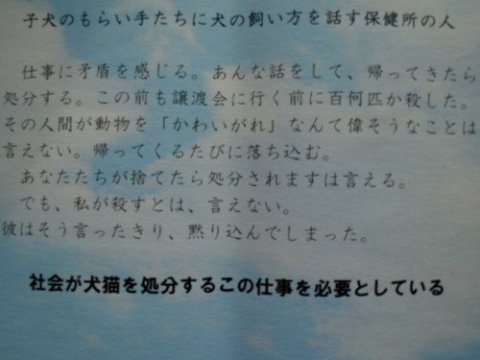 子犬のもらい手たちに犬の飼い方を話す保健所の人
仕事に矛盾を感じる。あんな話をして、帰ってきたら
処分する。この前も譲渡会に行く前に百何匹か殺した。
その人間が動物を「かわいがれ」なんて偉そうなことは
言えない。帰ってくるたびに落ち込む。
あなたたちが捨てたら処分されますは言える。
でも、私が殺すとは、言えない。
彼はそう言ったきり、黙り込んでしまった。
社会が犬猫を処分するこの仕事を必要としている